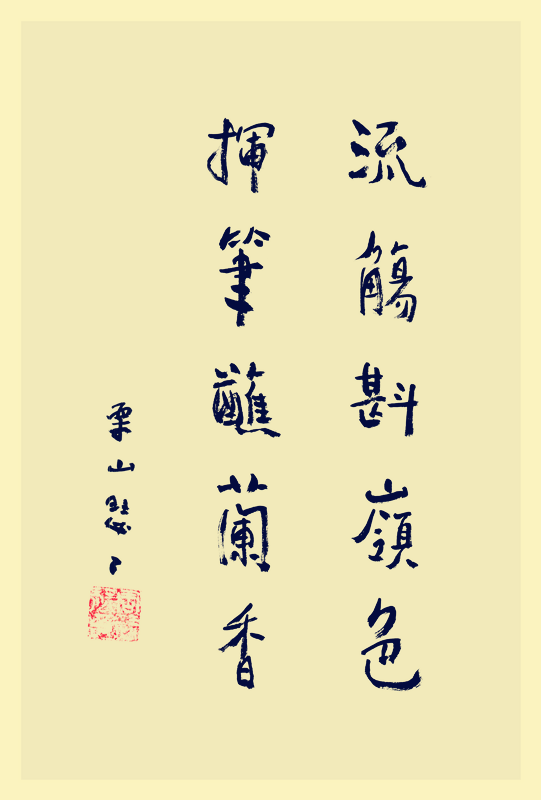 流觴斟嶺色
揮筆蘸蘭香
栗山